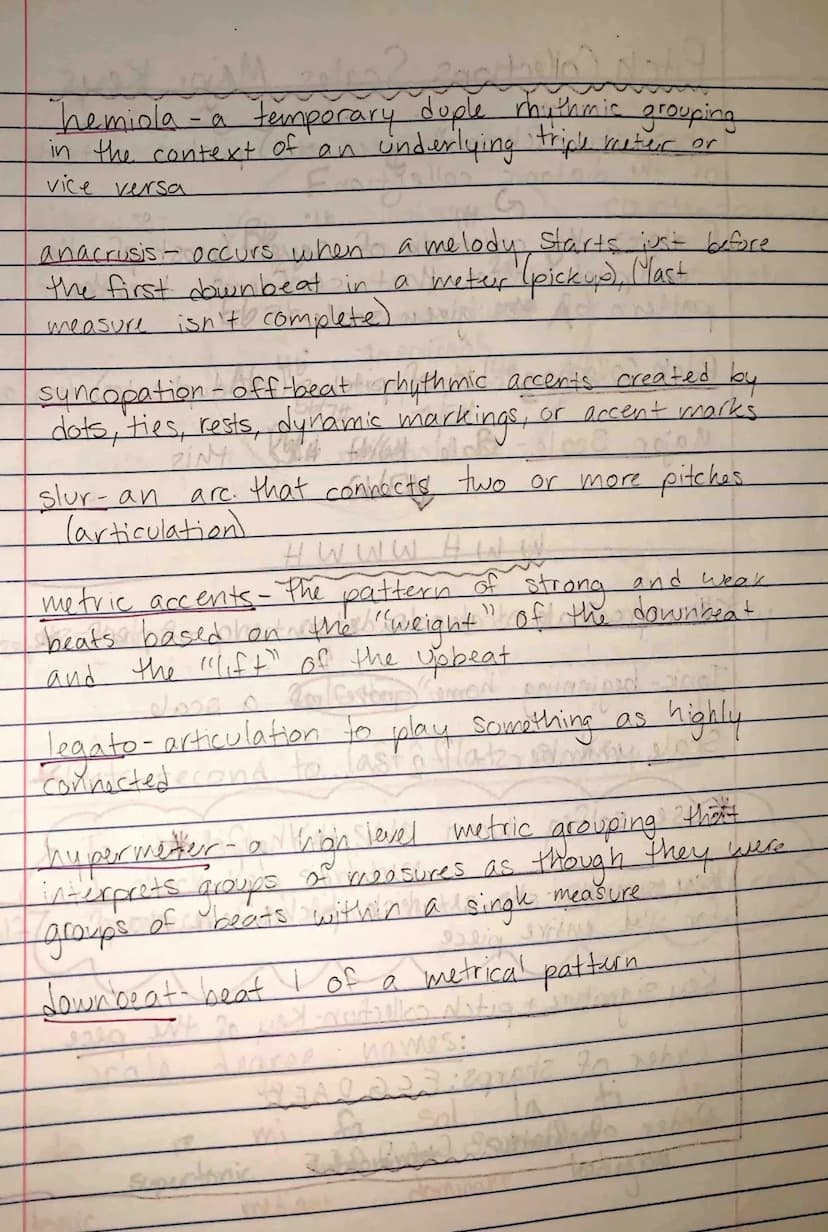 hemiola - a temporary duple rhythmic grouping
in the context of an underlying triple meter or
vice versa
anacrusis - occurs when a melody starts just before
the first downbeat in a meter (pickup), (last
measure isn't complete)
syncopation - off-beat rhythmic accents created by
dots, ties, rests, dynamic markings, or accent marks
slur - an arc that connects two or more pitches
(articulation)
metric accents - the pattern of strong and weak
beats based on the "weight" of the downbeat
and the "lift" of the upbeat
legato - articulation to play something as highly
connected
hypermeter - a high level metric grouping that
interprets groups of measures as though they were
groups of beats within a single measure
downbeat - beat 1 of a metrical pattern